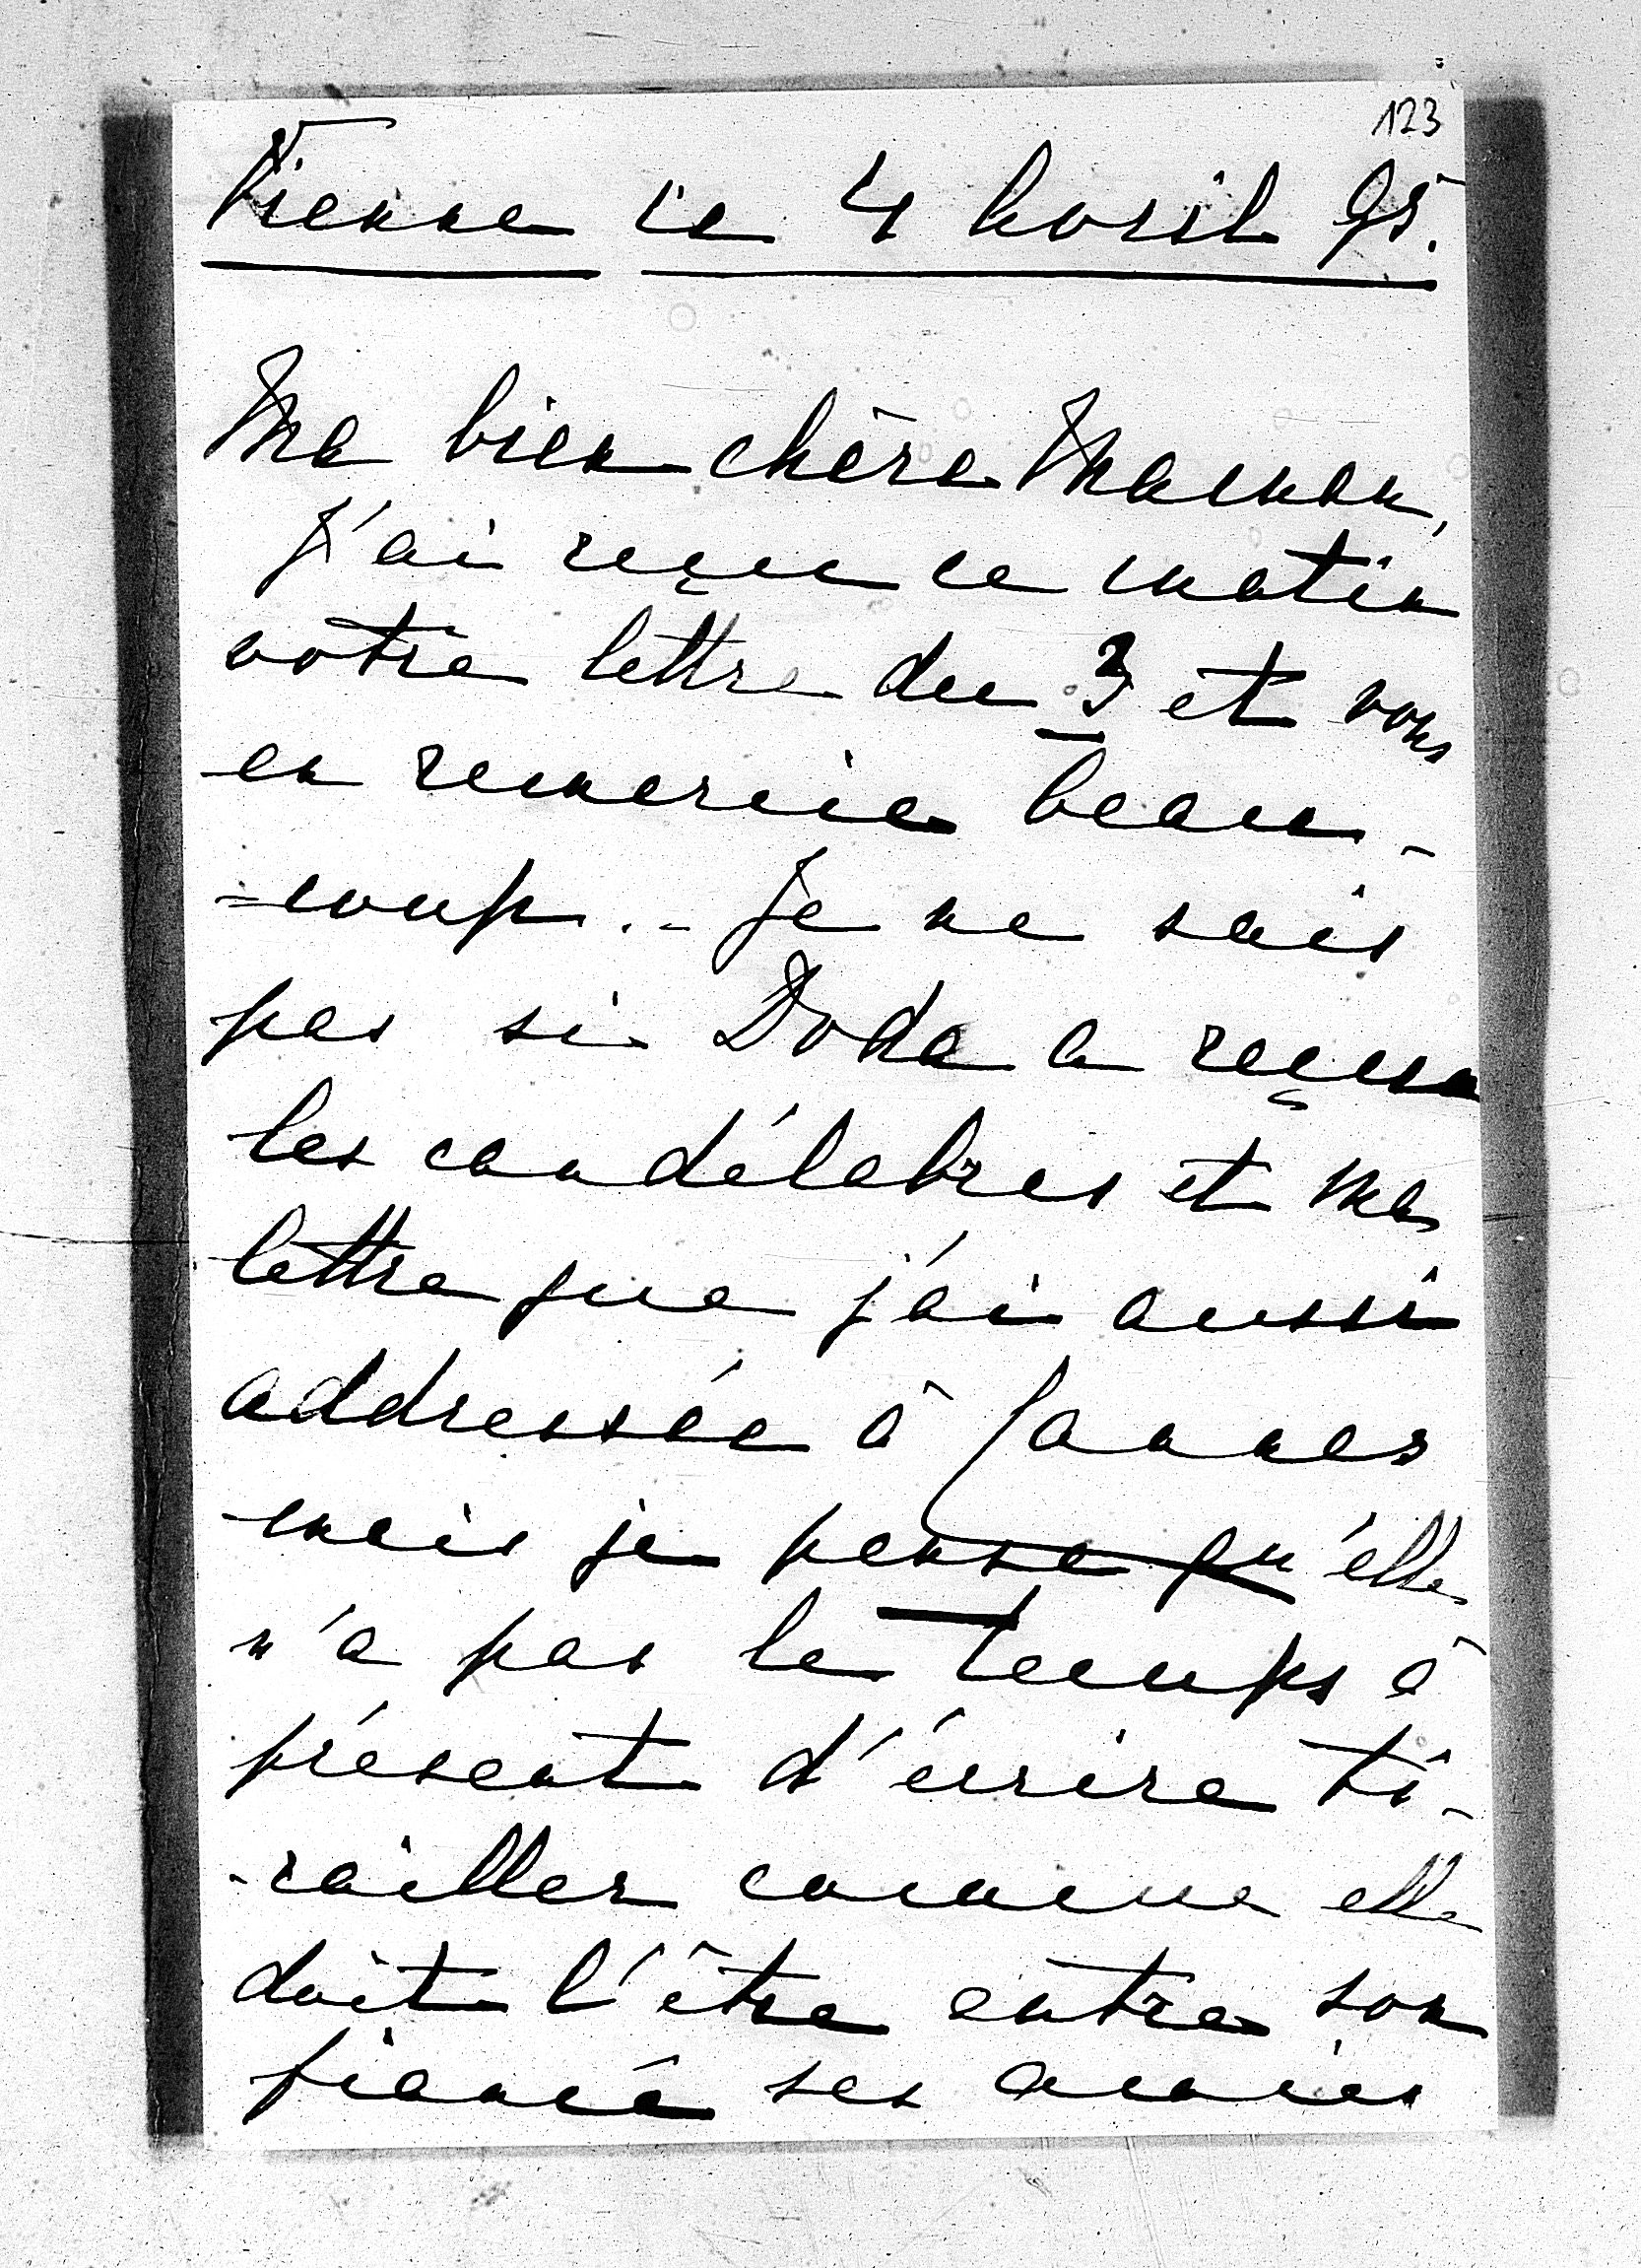 123
Vienne le 4 Avril 95.
Ma bien chère Maman,
J'ai reçue ce matin
votre lettre du 3 et vous
en remercie beau-
-coup.- Je ne sais
pas si Doda a reçue
les candélabres et ma
lettre que j'ai aussi
addressée à Cannes
mais je pense qu'elle
n'a pas le temps à
présent d'écrire ti-
-railler comme elle
doit l'être entre son
fiancé ses amies